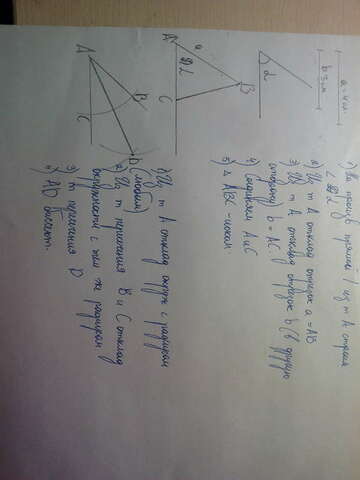 a = 4 см.
b = 3 см
α
A
a
α
C
B
1) На произв. прямой l из т А строим
∠ α
2) Из т А отклад отрезок a = AB
3) Из т А отклад отрезок b (в другую
сторону) b = AC
4) Соединяем
5) Δ ABC - искам.
A
B
C
D
1) Из т А отклад окруж с радиусом
(любым)
2) Из т пересечения B и C отклад
окружности с тем же радиусом
3) т пересечения D
4) AD биссект.